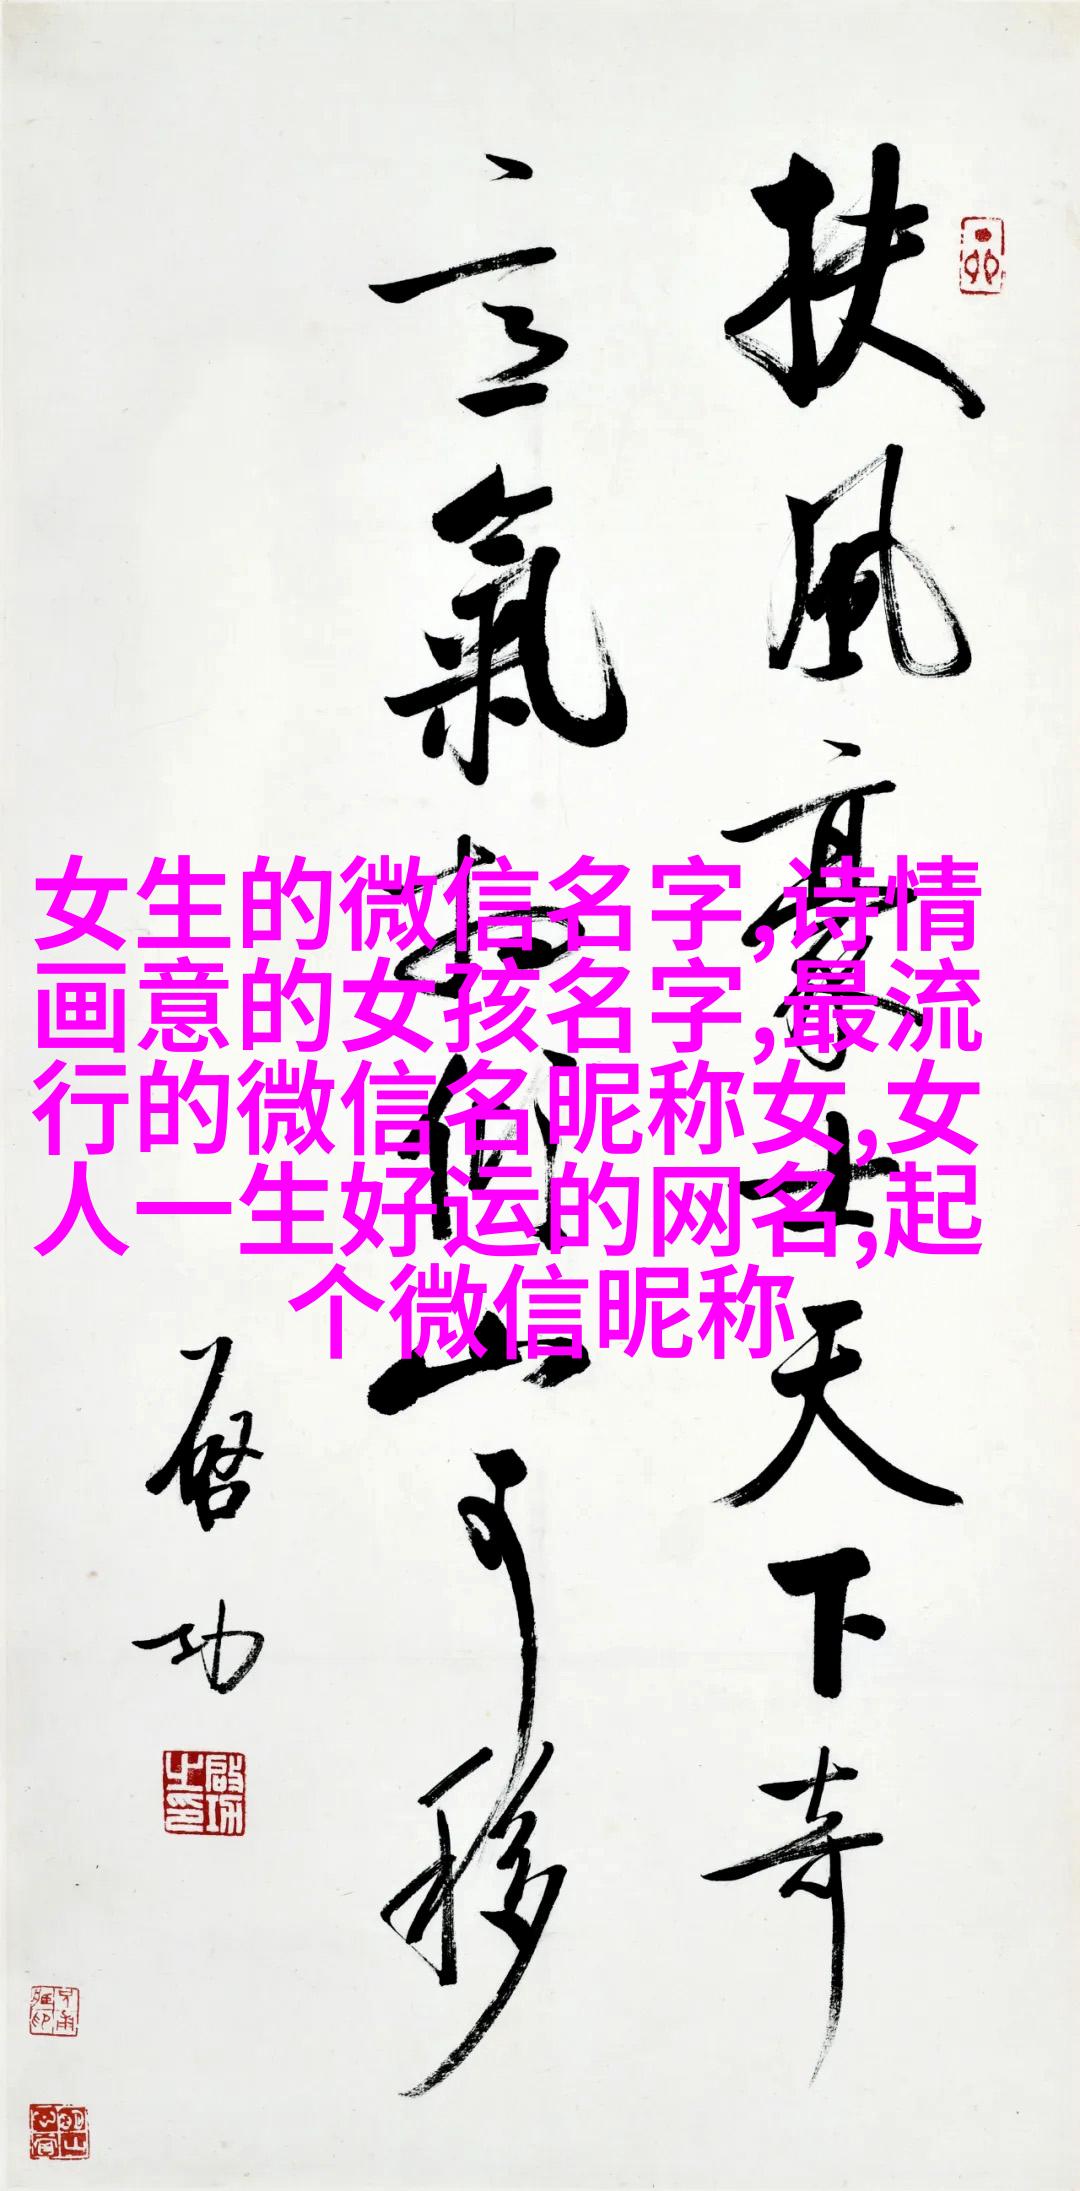 扶風豪士天下奇
意氣相傾山可移
啓功
啟功之印
女生的微信名字,诗情
画意的女孩名字,最流
行的微信名昵称女,女
人一生好运的网名,起
个微信昵称